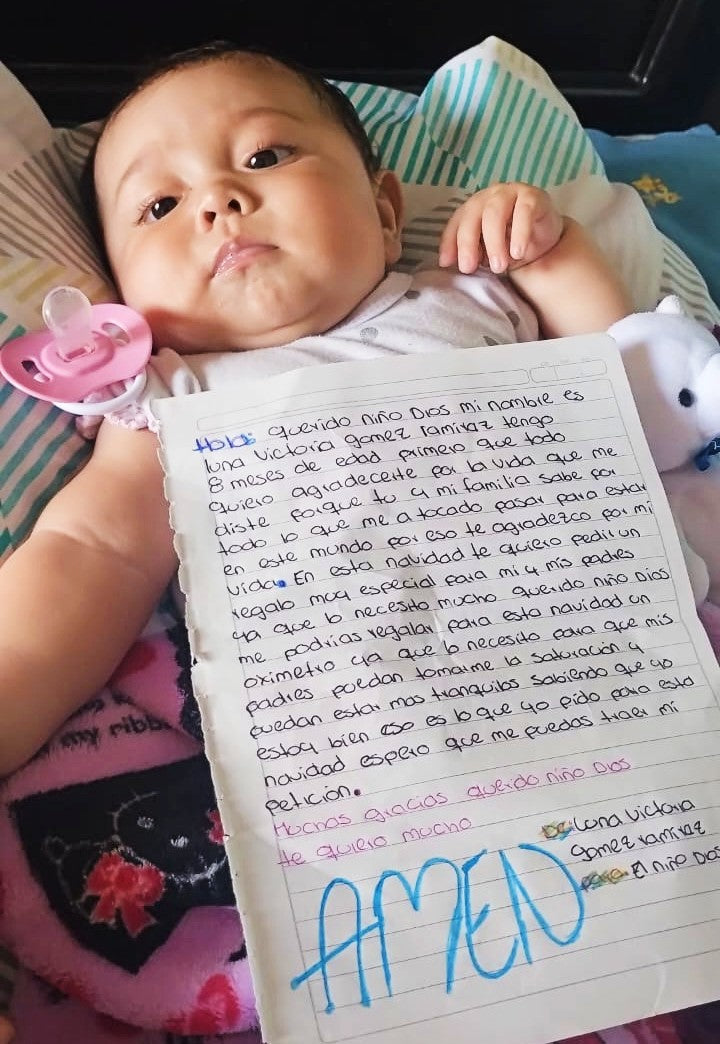 Hola: querido niño Dios mi nombre es
luna victoria gomez ramiraz tengo
8 meses de edad primero que todo
quiero agradecerte por la vida que me
diste porque tu y mi familia sabe por
todo lo que me a tocado pasar para estar
en este mundo por eso te agradezco por mi
vida. En esta navidad te quiero pedir un
regalo muy especial para mi y mis padres
ya que lo necesito mucho querido niño Dios
me podrias regalar para esta navidad un
oximetro ya que lo necesito para que mis
padres puedan tomarme la saturación y
puedan estar mas tranquilos sabiendo que yo
estoy bien eso es lo que yo pido para esta
navidad espero que me puedas traer mi
petición.
Muchas gracias querido niño Dios
te quiero mucho
De: luna victoria
gomez ramiraz
para: El niño Dios
AMEN
my ribb